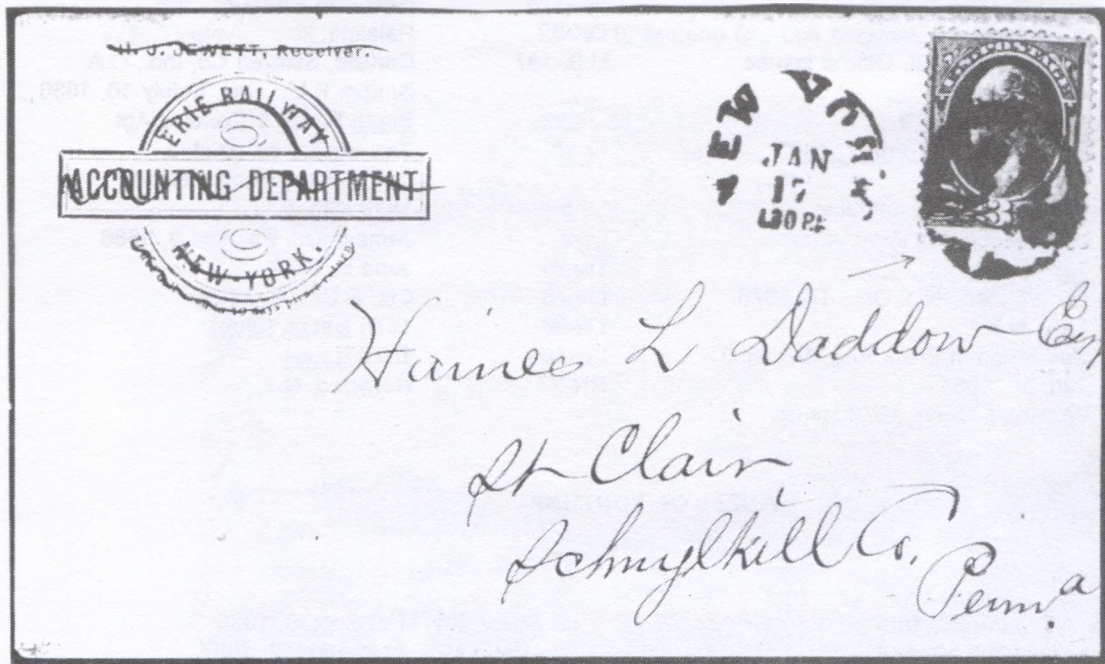 H. J. JEWETT, Receiver.
ERIE RAILWAY
ACCOUNTING DEPARTMENT
NEW-YORK.
NEW YORK
JAN
17
1.30 PM
Haines L Daddow Esq
St Clair,
Schuylkill Co.
Penn.a